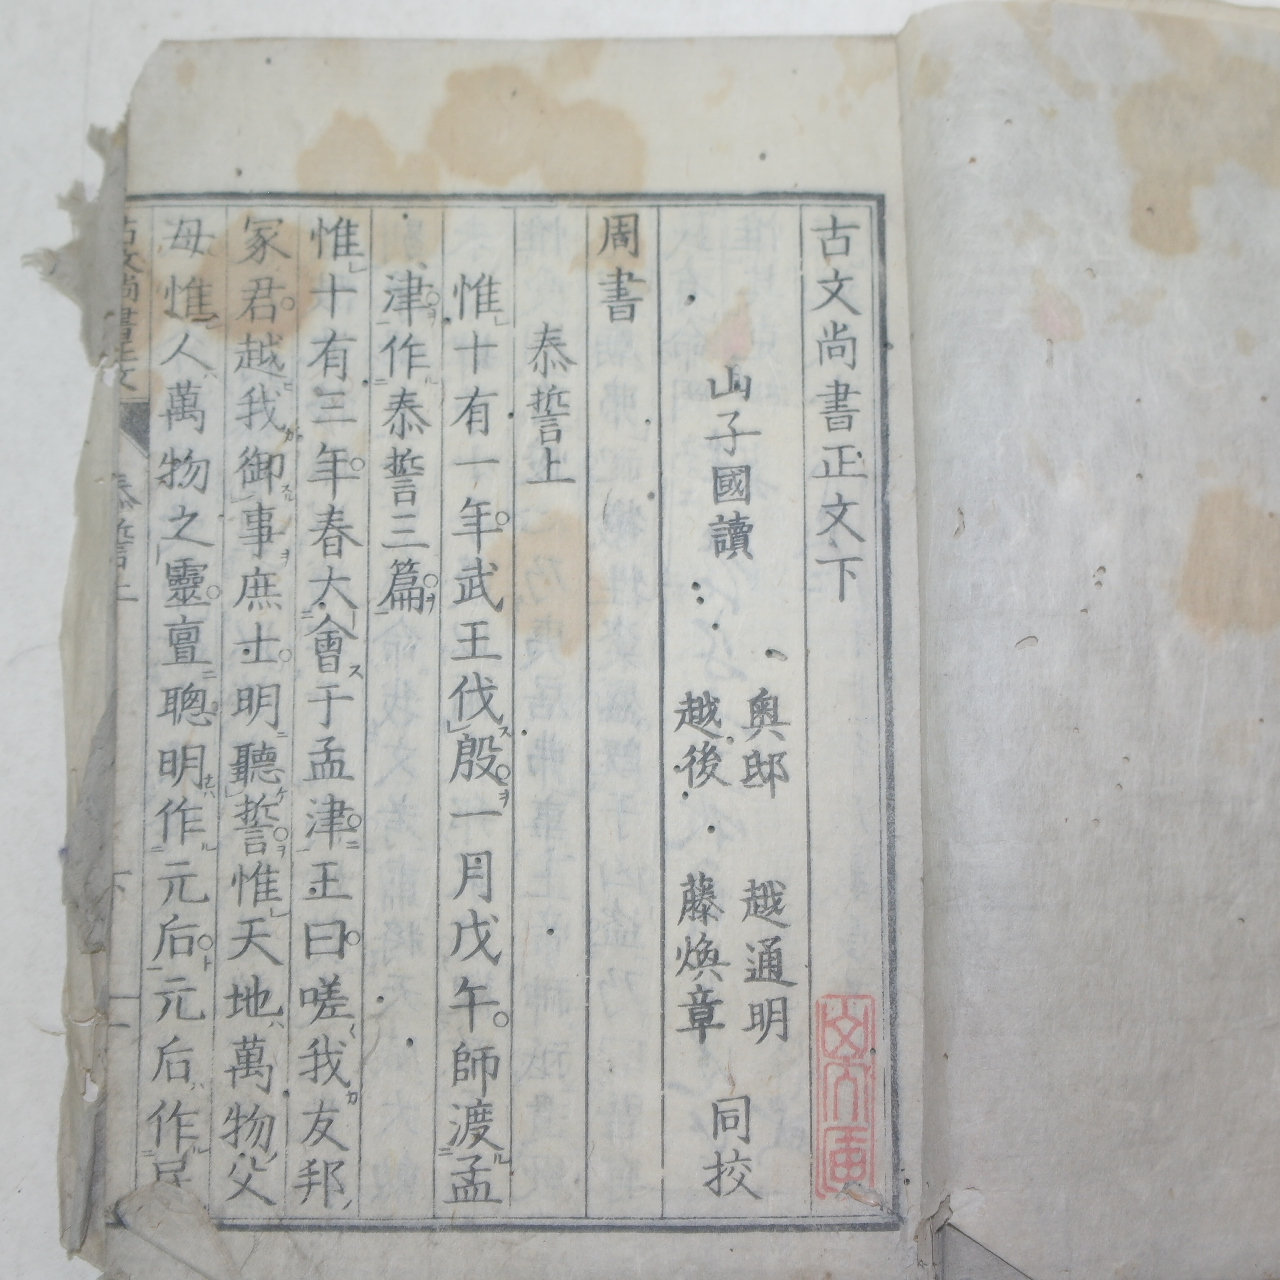 古文尚書正文下
山子國讀
奧邸 越通明
越後 藤煥章
同挍
周書
泰誓上
惟十有一年武王伐殷一月戊午師渡孟
津作泰誓三篇
惟十有三年春大會于孟津王曰嗟我友邦
冢君越我御事庶士明聽誓惟天地萬物父
母惟人萬物之靈亶聰明作元后元后作民
古文尚書正文 泰誓上